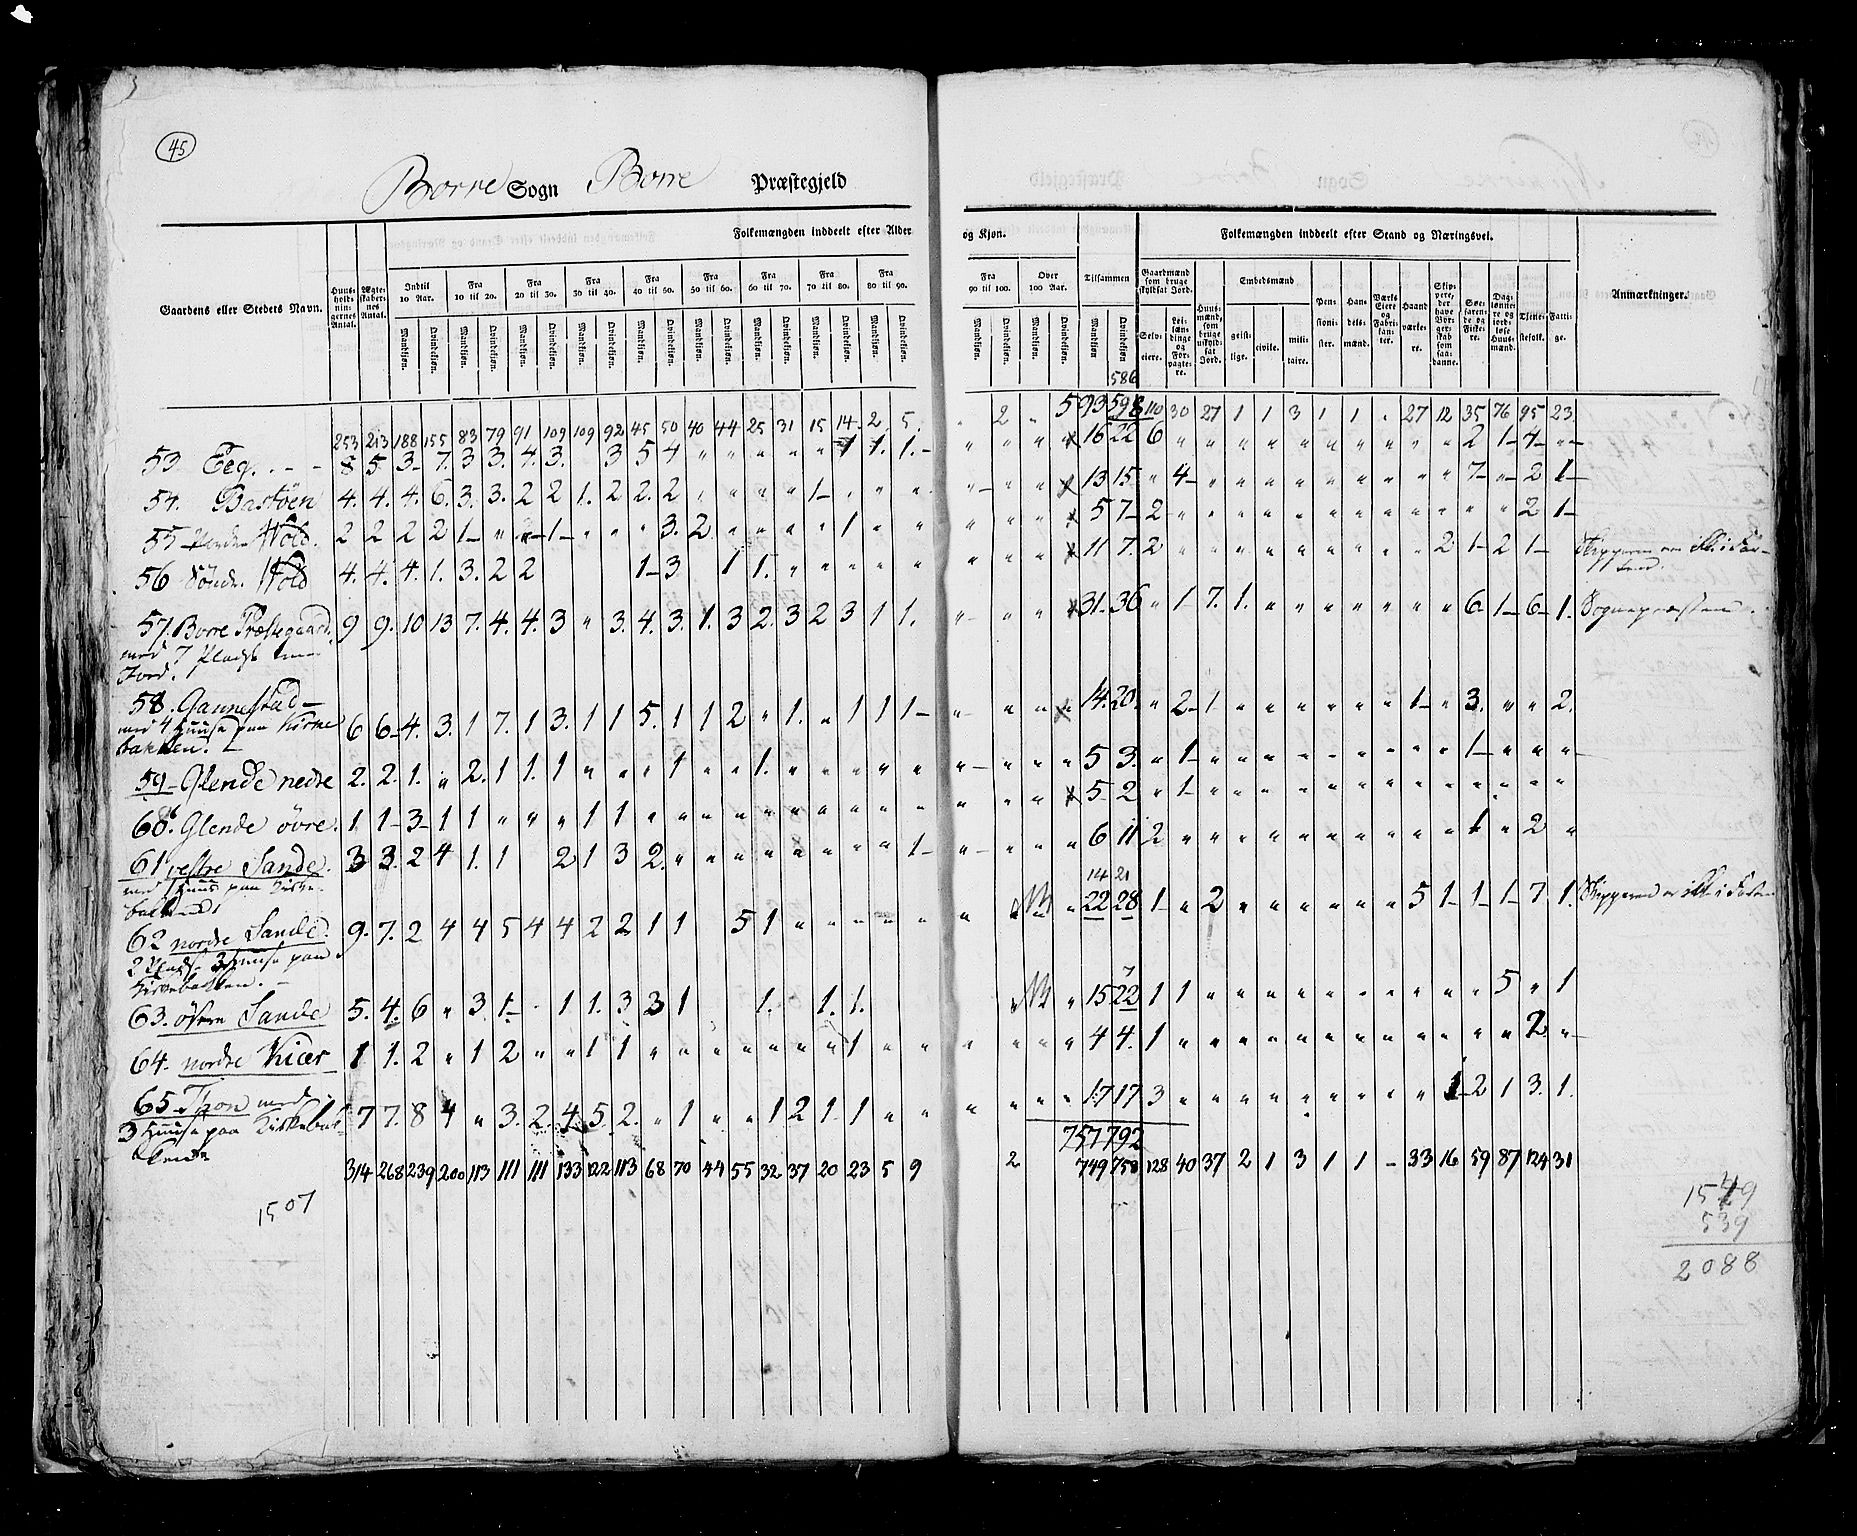 45
Borre Sogn Borre Præstegjeld
Folkemængden inddeelt efter Alder og Kjøn.
Folkemængden inddeelt efter Stand og Næringsvei.
Gaardens eller Stedets Navn.
Huus-holdnin-gernes Antal.
Ægte-skaber-nes Antal.
Indtil 10 Aar.
Fra 10 til 20.
Fra 20 til 30.
Fra 30 til 40.
Fra 40 til 50.
Fra 50 til 60.
Fra 60 til 70.
Fra 70 til 80.
Fra 80 til 90.
Fra 90 til 100.
Over 100 Aar.
Tilsammen
Mandkjøn. Qvindekjøn.
Gaardmænd som bruge skyldsat Jord.
Selv-eiere.
Lei-læn-dinge og For-pagte-re.
Huus-mænd, som bruge uskyld-sat Jord.
Embedsmænd
geist-lige.
civile.
mili-taire.
Pen-sioni-ster.
Han-dels-mænd.
Værks Eiere og Fabri-kan-ter.
Haand-værke-re.
Skip-pere, der have Bor-ger-skab som saa-danne.
Søe-faren-de og Fiske-re.
Dag-lønne-re og jord-løse Huus-mænd.
Tjene-stefolk.
Fatti-ge.
Anmærkninger.
586
253 213 188 155 83 79 91 109 109 92 45 50 40 44 25 31 15 14 2 5 2 593 598 110 30 27 1 1 3 1 1 27 12 35 76 95 23
53 Eeg. 8 5 3 7 3 3 4 3 3 5 4 1 1 1 16 22 6 2 1 4
54. Bastöen 4 4 4 6 3 3 2 2 1 2 2 2 1 13 15 4 7 2 1
55 Wold. 2 2 2 2 1 1 3 2 1 5 7 2 2 1
56 Söndr. Wold 4 4 4 1 3 2 2 1 3 1 1 11 7 2 2 1 2 1
57. Borre Præstegaard 9 9 10 13 7 4 4 3 3 4 3 1 3 2 3 2 3 1 1 31 36 1 7 1 6 1 6 1 Sognepræsten
med 7 Pladse
Jord.
58. Gannestad
med 4 Huuse paa Kirke 6 6 4 3 1 7 1 3 1 1 5 1 1 2 1 1 1 1 14 20 2 1 1 3 2
bakken.
59 Glende nedre 2 2 1 2 1 1 1 1 1 5 3 1 1
60. Glende övre. 1 1 3 1 1 1 1 5 2 1
61 vestre Sande. 3 3 2 4 1 1 2 1 3 2 1 6 11 2 1 2
med Huus paa Kirke-
bakken
14 21
62 nordre Sande. 9 7 2 4 4 5 4 4 2 2 1 1 5 1 NB 22 28 1 2 5 1 1 1 7 1
2 Plads. 3 Huuse paa
Kirkebakken.
7
63. östre Sande 5 4 6 3 1 1 1 3 3 1 1 1 1 NB 15 22 1 1 5 1
64. nordre Kiær 1 1 2 1 2 1 1 1 4 4 1 2
65 Thon med
3 Huuse paa Kirkebak- 7 7 8 4 3 2 4 5 2 1 1 2 1 1 17 17 3 1 2 1 3 1
ken
757 792
314 268 239 200 113 111 111 133 122 113 68 70 44 55 32 37 20 23 5 9 2 749 750 128 40 37 2 1 3 1 1 33 16 59 87 124 31
1507
1549
539
2088